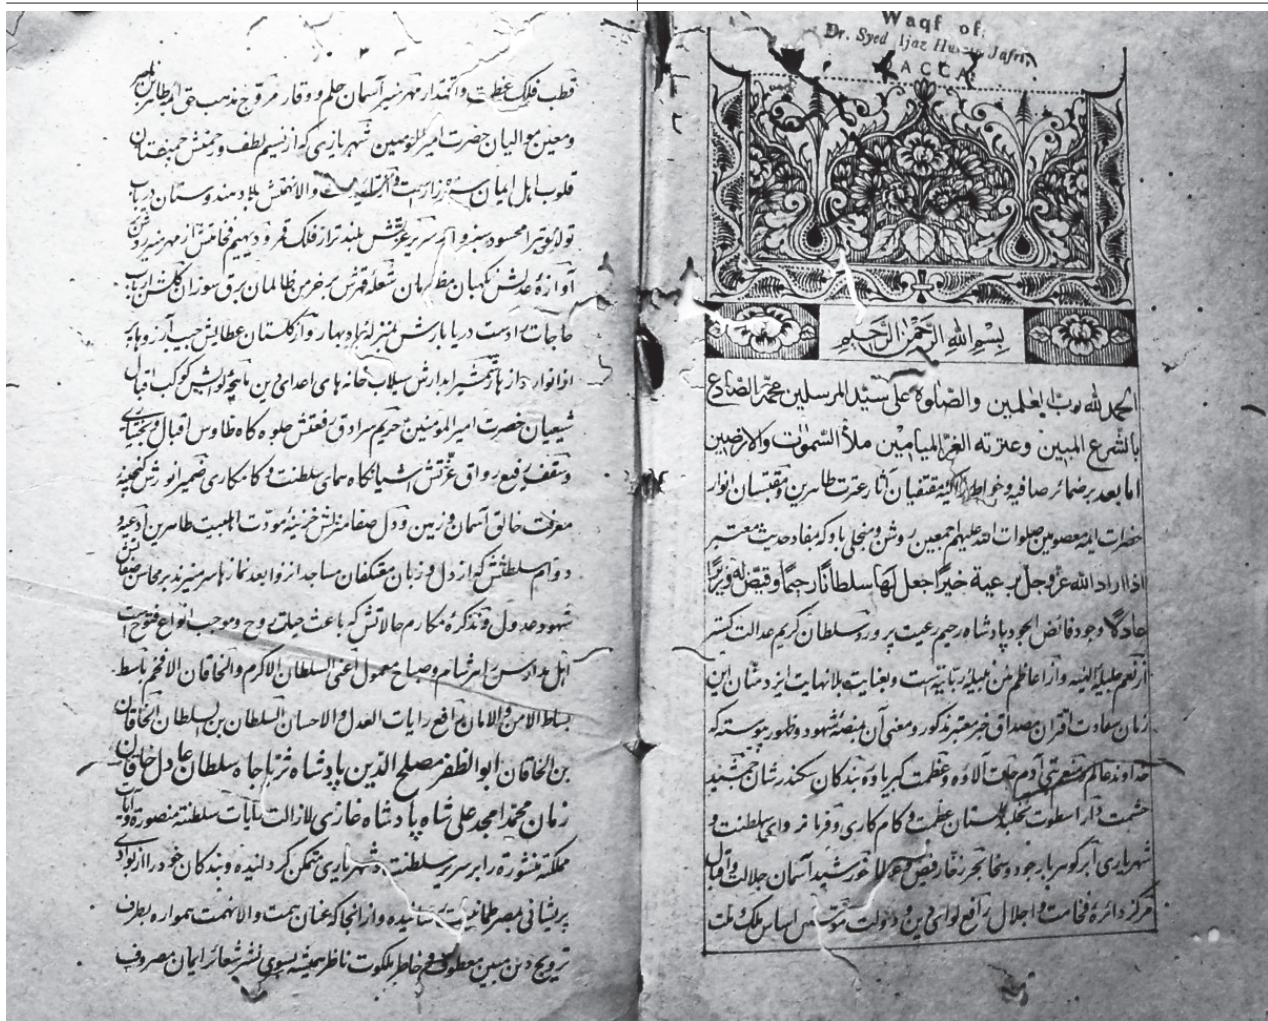 Waqf of:
Dr. Syed Ijaz Husain Jafri,
DACCA.
بِسْمِ اللهِ الرَّحْمٰنِ الرَّحِيْمِ
الحمد لله رب العلمين والصلوة على سيد المرسلين محمد الصادع
بالشرع المبين وعترته الغر الميامين ملأ السموات والارضين
اما بعد بر ضمائر صافيه و خواطر مقتفيان آثار عترت طاهرين و مقتبسان انوار
حضرات ايمه معصومين صلوات الله عليهم اجمعين روشن و منجلى باد كه مفاد حديث معتبر
اذا اراد الله عز وجل برعية خيرا جعل لها سلطانا رحيما وقيض له وزيرا
عادلا وجود فائض الجود پادشاه رحيم رعيت پرور و سلطان كريم عدالت گستر
از نعم جليله الهيه و از اعاظم منن جميله ربانيه است و بعنايت بلانهايت ايزد منان اين
زمان سعادت اقتران مصداق خبر معتبر مذكور و معنى آن بمنصه شهود و ظهور پيوسته كه
خداوند عالم بنى آدم جلت آلاؤه و عظمت كبرياؤه بندگان سكندر شان جمشيد
حشمت دارا سطوت نخلبند بستان عظمت و كامگارى و فرمانرواى سلطنت و
شهريارى ابر گوهر بار جود و سخا بحر زخار فيض خورشيد آسمان جلالت و اقبال
مركز دائرۀ فخامت و اجلال رافع لواى دين و دولت موسس اساس ملك و ملت
٢
قطب فلك عظمت و اقتدار مهر منير آسمان حلم و وقار مروج مذهب حق ائمه طاهرين
و معين مواليان حضرت امير المومنين شهريارى كه از نسيم لطف و رحمتش چمنستان
قلوب اهل ايمان والانهمتش بلاد هندوستان
محسود سبز سرير عزتش بلندتر از فلك قمر و ديهيم فخامتش از مهر منير
آوازۀ عدلش نگهبان مظلومان شعلۀ قهرش بر خرمن ظالمان برق سوزان گلشن
حاجات را دست دريا بارش بمنزلۀ بهار و از گلستان عطايش جيب آرزوها پر
شمشير آبدارش سيلاب خانه هاى اعداى دين كوكب اقبال
شيعيان حضرت امير المومنين حريم سرادق رفعتش جلوه گاه طاوس اقبال
و سقف رفيع رواق عزتش آشيانگاه هماى سلطنت و كامگارى ضمير انورش گنجينۀ
معرفت خالق آسمان و زمين و دل صفا منزلش خزينۀ مودت اهلبيت طاهرين ادعيۀ
دوام سلطنتش كه از دل و زبان معتكفان مساجد انزوا بعد نمازها سر ميزند بر محاسن
شهود عدول و تذكرۀ مكارم حالاتش كه باعث حيات روح و موجب انواع فتوح است
اهل مدارس را هر شام و صباح معمول اعنى السلطان الاكرم والخاقان الافخم باسط
بساط الامن والامان رافع رايات العدل والاحسان السلطان بن السلطان الخاقان
بن الخاقان ابو الظفر مصلح الدين پادشاه ثريا جاه سلطان عادل خاقان
زمان محمد امجد على شاه پادشاه غازى لازالت رايات سلطنته منصورة
مملكته منشورة را بر سرير سلطنت و شهريارى متمكن گردانيده و بندگان خود را از
پريشانى بمصر طمانينت رسانيده و از انجا كه عنان همت والانهمت همواره بطرف
ترويج دين مبين معطوف و خاطر ملكوت ناظر هميشه بسوى نشر شعائر ايمان مصروف